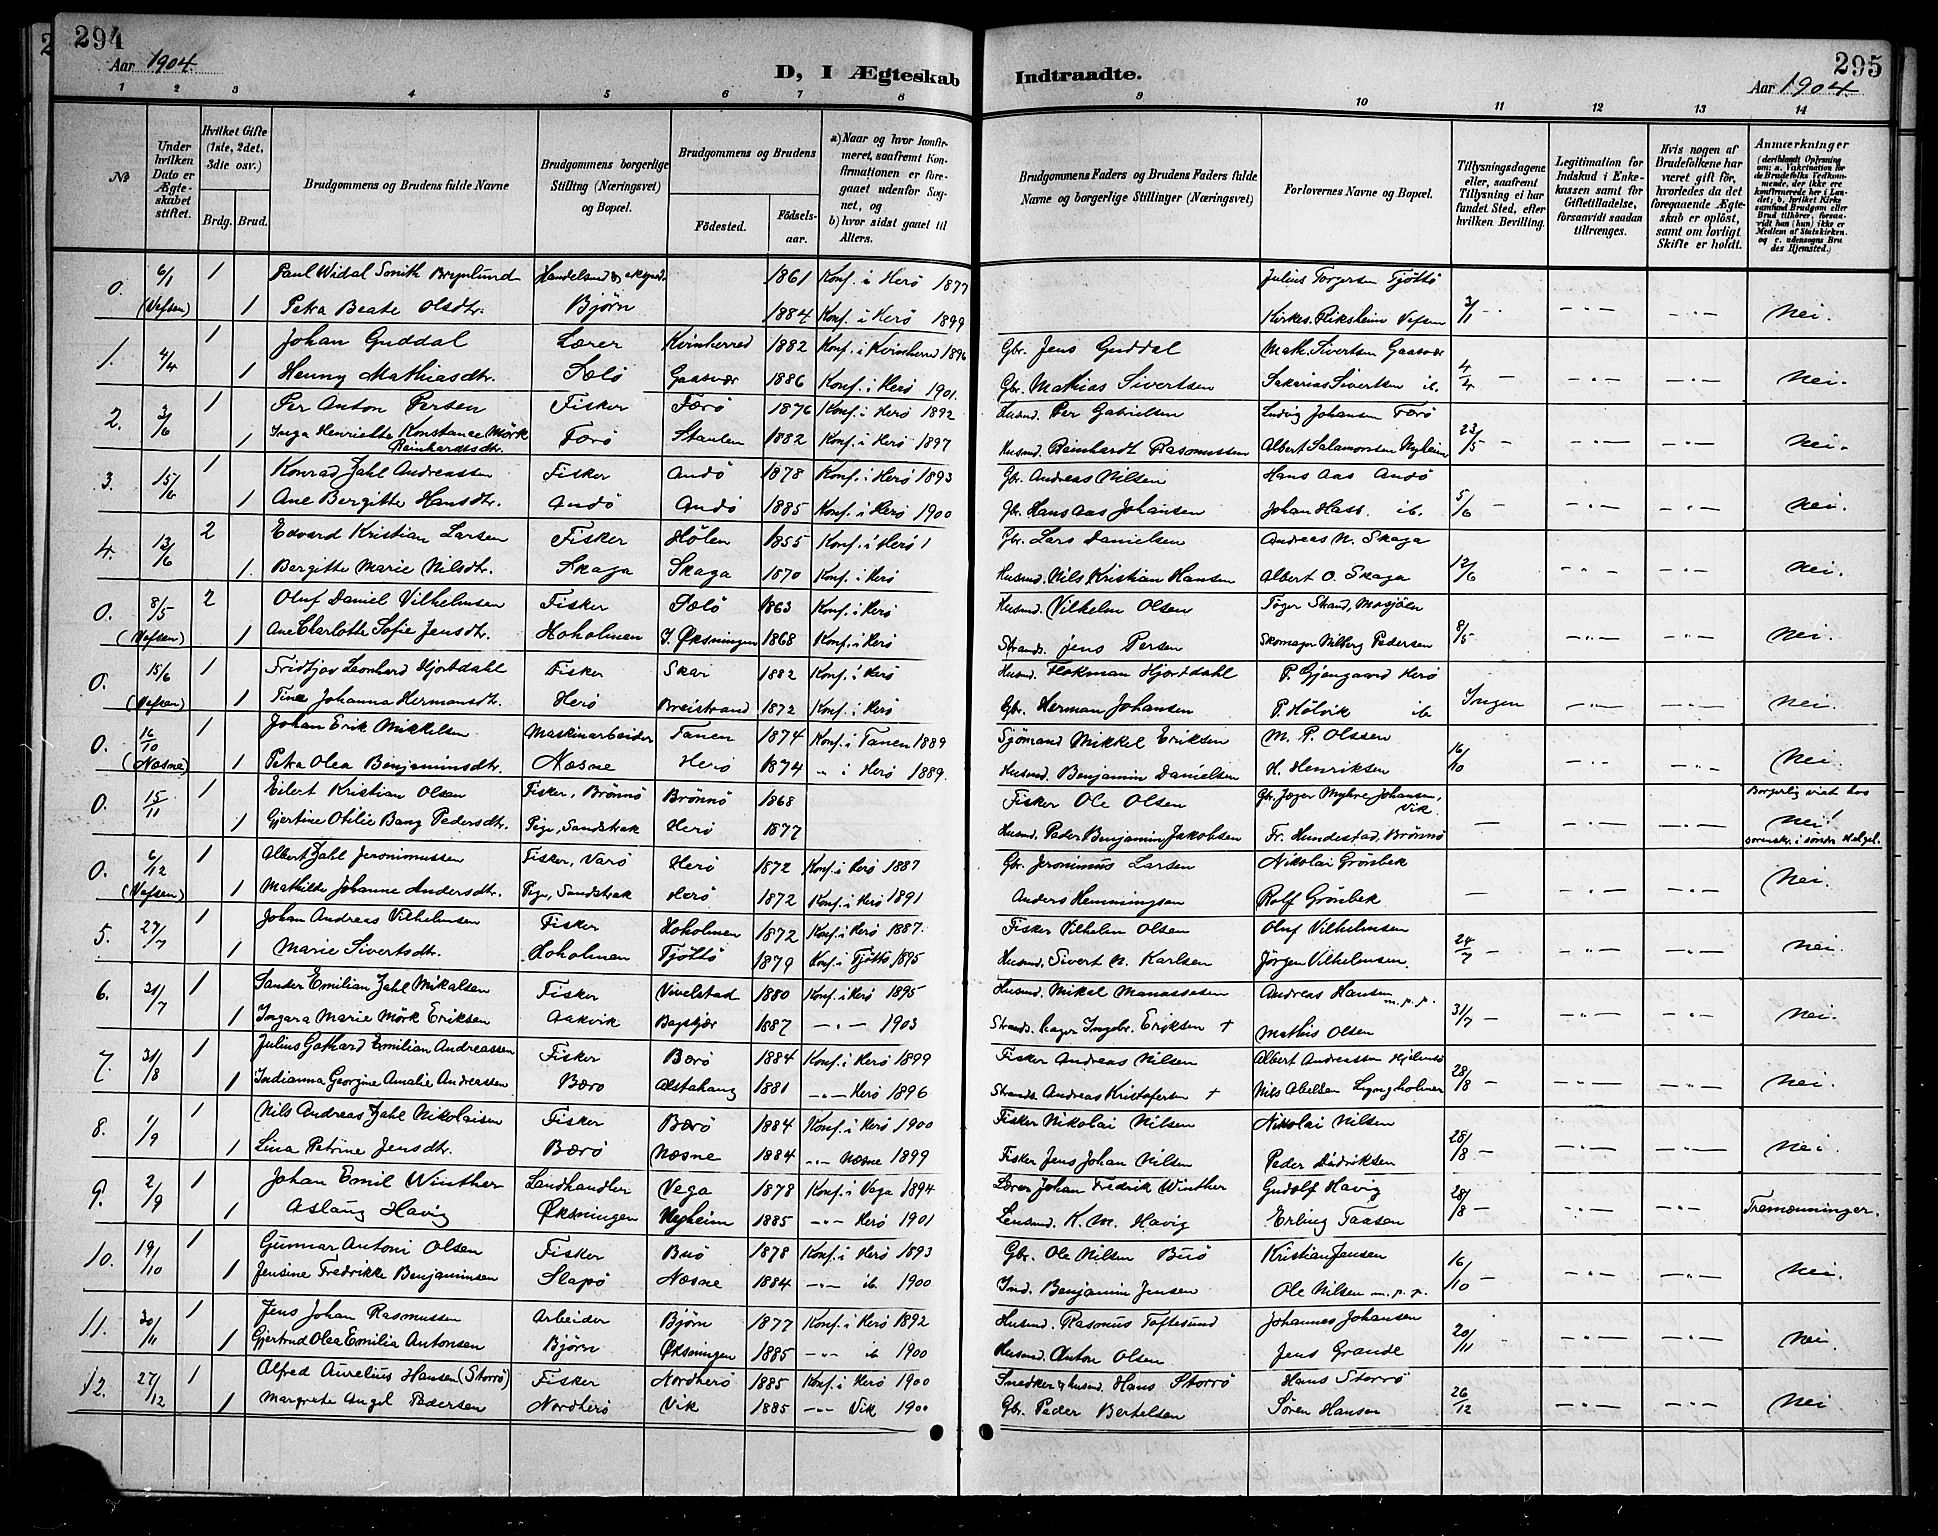 294
Aar 1904.
D, I Ægteskab
1 2 3 4 5 6 7 8
No
Under hvilken Dato er Ægteskabet stiftet.
Hvilket Gifte (1ste, 2det, 3die osv.)
Brdg. Brud.
Brudgommens og Brudens fulde Navne
Brudgommens borgerlige Stilling (Næringsvei) og Bopæl.
Brudgommens og Brudens
Födested.
Födsels-aar.
a) Naar og hvor konfirmeret, saafremt Konfirmationen er foregaaet udenfor Sognet, og
b) hvor sidst gaaet til Alters.
0. 6/1 1 Paul Widal Smith Brynlund 1861 Konf. i Herö 1877
(Vefsen) 1 Petra Beate Olsdtr. Bjørn 1884 Konf. i Herö 1899
1. 4/4 1 Johan Guddal Lærer Kvinherred 1882 Konf. i Kvinherred 1896
1 Henny Mathiasdtr. Sælö Gaasvær 1886 Konf. i Herö 1901.
2. 3/6 1 Per Anton Persen Fisker Færö 1876 Konf. i Herö 1892
1 Inga Henriette Konstance Mörk Reinhardtsdtr. Færö Staulen 1882 Konf. i Herö 1897
3. 15/6 1 Konrad Zahl Andreassen Fisker Andö 1878 Konf. i Herö 1893
1 Ane Bergitte Hansdtr. Andö Andö 1885 Konf. i Herö 1900
4. 13/6 2 Edvard Kristian Larsen Fisker Hölen 1855 Konf. i Herö
1. Bergitte Marie Nilsdtr. Skaga Skaga 1870 Konf. i Herö
0. 8/5 2 Oluf Daniel Vilhelmsen Fisker Sælö 1863 Konf. i Herö
(Vefsen) 1 Ane Charlotte Sofie Jensdtr. Hoholmen I. Øksningen 1868 Konf. i Herö
0. 15/6 1 Fridtjov Leonhard Hjortdahl Fisker Skar 1882 Konf. i Herö
(Vefsen) 1 Tine Johanna Hermansdtr. Herö Breistrand 1872 Konf. i Herö
0. 16/10 1 Johan Erik Mikkelsen Maskinarbeider Tanen 1874 Konf. i Tanen 1889
(Næsne) 1 Petra Olea Benjaminsdtr. Næsne Herö 1874 " i Herö 1889.
0. 15/11 1 Eilert Kristian Olsen Fisker, Brönnö Brönnö 1868
1 Gjertine Otilie Bang Pedersdtr. Pige, Sandstrak Herö 1877
0. 6/12 1 Albert Zahl Jeronimussen Fisker, Varö Herö 1872 Konf. i Herö 1887
(Vefsen) 1 Mathilde Johanne Andersdtr. Pige, Sandstrak Herö 1872 Konf. i Herö 1891
5. 27/7 1 Johan Andreas Vilhelmsen Fisker Hoholmen 1872 Konf. i Herö 1887.
1 Marie Sivertsdtr. Hoholmen Tjöttö 1879 Konf. i Tjöttö 1895
6. 31/7 1 Sander Emilian Zahl Mikalsen Fisker Vivelstad 1880 Konf. i Herö 1895
1 Ingara Marie Mörk Eriksen Aakvik Bagskjær 1887 — " — 1903
7. 31/8 1 Julius Gothard Emilian Andreassen Fisker Bærö 1884 Konf. i Herö 1899
1 Indianna Georgine Amalie Andreassen Bærö Alstahaug 1881 — " — Herö 1896
8. 1/9 1 Nils Andreas Zahl Nikolaisen Fisker Bærö 1884 Konf. i Herö 1900
1 Lina Petrine Jensdtr. Bærö Næsne 1884 — " — Næsne 1899
9. 2/9 1 Johan Emil Winther Landhandler Vega 1878 Konf. i Vega 1894
1 Aslaug Havig Øksningen Myheim 1885 — " — Herö 1901
10. 19/10 1 Gunnar Antoni Olsen Fisker Buö 1878 Konf. i Herö 1893
1 Jensine Fredrikke Benjaminsen Slapö Næsne 1884 — " — ib 1900
11. 30/11 1 Jens Johan Rasmussen Arbeider Bjørn 1877 Konf. i Herö 1892
1 Gjertrud Olea Emilia Antonsen Bjørn Øksningen 1885 — " — ib 1900
12. 27/12 1 Alfred Aurelius Hansen (Storrö) Fisker Nordherö 1885 Konf. i Herö 1900
1 Margrete Angel Pedersen Nordherö Vik 1885 — " — Vik 1900
295
Aar 1904
Indtraadte.
9 10 11 12 13 14
Brudgommens Faders og Brudens Faders fulde Navne og borgerlige Stillinger (Næringsvei)
Forlovernes Navne og Bopæl.
Tillysningsdagene eller, saafremt Tillysning ei har fundet Sted, efter hvilken Bevilling.
Legitimation for Indskud i Enkekassen samt for Giftetilladelse, forsaavidt saadan tiltrænges.
Hvis nogen af Brudefolkene har været gift för, hvorledes da det foregaaende Ægteskab er oplöst, samt om lovligt Skifte er holdt.
Anmærkninger
(deriblandt Oplysning om: a. Vakcination for de Brudefolks Vedkommende, der ikke ere konfirmerede her i Landet; b. hvilket Kirkesamfund Brudgom eller Brud tilhörer, forsaavidt han (hun) ikke er Medlem af Statskirken og c. udensogns Brudes Hjemsted.)
Julius Torgersen Tjöttö
Kirkes. Riksheim Vefsen 3/11 - — " — — " — Nei.
Gbr. Jens Guddal Math. Sivertsen Gaasvær
Gbr. Mathias Sivertsen Sakarias Sivertsen ib. 4/4 — — " — — " — Nei.
Husmd. Per Gabrielsen Ludvig Johansen Færö
Husmd. Reinhardt Rasmussen Albert Salamonsen Myheim 23/5 — — " — — " — Nei.
Gbr. Andreas Nilsen Hans Aas Andö
Gbr. Hans Aas Johansen Johan Hass. ib. 5/6 — — " — — " — Nei.
Gbr. Lars Danielsen Andreas N. Skaga
Husmd. Nils Kristian Hansen Albert O. Skaga 12/6 — " — — " — Nei.
Husmd. Vilhelm Olsen Töger Strand, Mosjöen
Strands. Jens Persen Skomager Nilberg Pedersen 8/5 — " — — " — Nei.
Husmd. Flokman Hjortdahl P. Gjengaard Herö
Gbr. Herman Johansen P. Hölvik ib Ingen — " — — " — Nei.
Sjömand Mikkel Eriksen M. P. Olssen
Husmd. Benjamin Danielsen H. Henriksen 16/10 — " — — " — Nei.
Fisker Ole Olsen Gbr. Jæger Myhre Johansen, Vik Borgerlig viet hos
Husmd. Peder Benjamin Jakobsen Fr. Hundestad, Brönnö — — " — — " — Nei! sorenskr. i söndre Helgel.
Gbr. Jeronimus Larsen Nikolai Grönbek
Anders Hemmingsen Rolf Grönbek — — " — — " — Nei.
Fisker Vilhelm Olsen Oluf Vilhelmsen
Husmd. Sivert N. Karlsen Jörgen Vilhelmsen. 24/7 — — " — — " — Nei.
Husmd. Mikal Manassesen Andreas Hansen m.p.p.
Strands. Ingebr. Eriksen + Mathis Olsen 31/7 — — " — — " — Nei.
Fisker Andreas Nilsen Albert Andreassen Hjelmsö
Strands. Andreas Kristofersen + Nils Abelsen Lyngholmen 28/8 — — " — — " — Nei.
Fisker Nikolai Nilsen Nikolai Nilsen
Fisker Jens Johan Nilsen Peder Didriksen 28/8 — — " — — " — Nei.
Lærer Johan Fredrik Winther Gudolf Havig
Lensmd. K. M. Havig Erling Taasen 28/8 — — " — — " — Tremænninger.
Gbr. Ole Nilsen Buö Kristian Jensen
Ind. Benjamin Jensen Ole Nilsen m.p.p. 16/10 — — " — — " — Nei.
Husmd. Rasmus Toftesund Johannes Johansen
Husmd. Anton Olsen Jens Grande 20/11 — " — — " — Nei
Snedker & husmd. Hans Storrö Hans Storrö
Gbr. Peder Bertelsen Sören Hansen 26/12 — " — — " — Nei